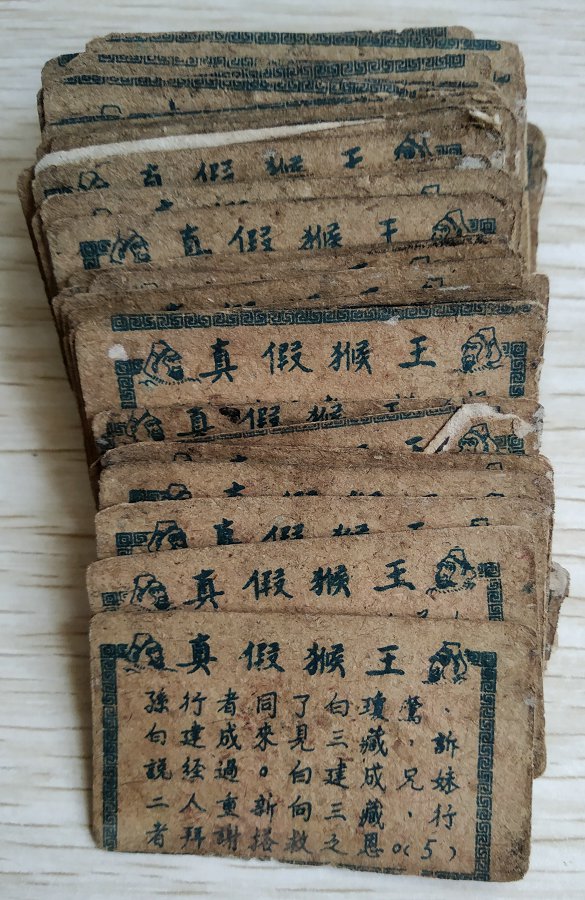 真假猴王
真假猴王
真假猴王
真假猴王
真假猴王
真假猴王
孫行者同了白瓊鶯、
白建成來見三藏，訴
説經過。白建成兄妹
二人重新向三藏，行
者拜謝搭救之恩。(5)